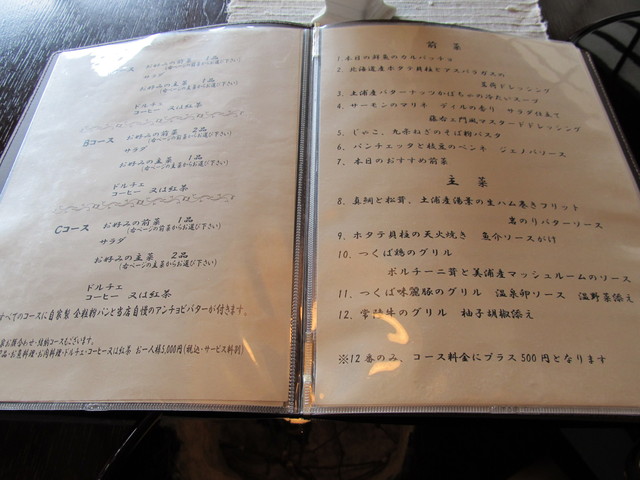 コース お好みの前菜 1品
(右ページの前菜からお選び下さい)
サラダ
お好みの主菜 1品
(右ページの主菜からお選び下さい)
ドルチェ
コーヒー 又は紅茶
Bコース お好みの前菜 2品
(右ページの前菜からお選び下さい)
サラダ
お好みの主菜 1品
(右ページの主菜からお選び下さい)
ドルチェ
コーヒー 又は紅茶
Cコース お好みの前菜 1品
(右ページの前菜からお選び下さい)
サラダ
お好みの主菜 2品
(右ページの主菜からお選び下さい)
ドルチェ
コーヒー 又は紅茶
すべてのコースに自家製 全粒粉パンと当店自慢のアンチョビバターが付きます。
コースもございます。
お魚料理・お肉料理・ドルチェ・コーヒー又は紅茶 お一人様5,000円(税込・サービス料別)
前菜
1. 本日の鮮魚のカルパッチョ
2. 北海道産ホタテ貝柱とアスパラガスの
ドレッシング
3. 土浦産バターナッツかぼちゃの冷たいスープ
4. サーモンのマリネ ディルの香り サラダ仕立て
藤右ェ門風マスタードドレッシング
5. じゃこ、九条ねぎのそば粉パスタ
6. パンチェッタと枝豆のペンネ ジェノバソース
7. 本日のおすすめ前菜
主菜
8. 真鯛と松茸、土浦産湯葉の生ハム巻きフリット
岩のりバターソース
9. ホタテ貝柱の天火焼き 魚介ソースがけ
10. つくば鶏のグリル
ポルチーニ茸と美浦産マッシュルームのソース
11. つくば味麗豚のグリル 温泉卵ソース 温野菜添え
12. 常陸牛のグリル 柚子胡椒添え
※12番のみ、コース料金にプラス500円となります